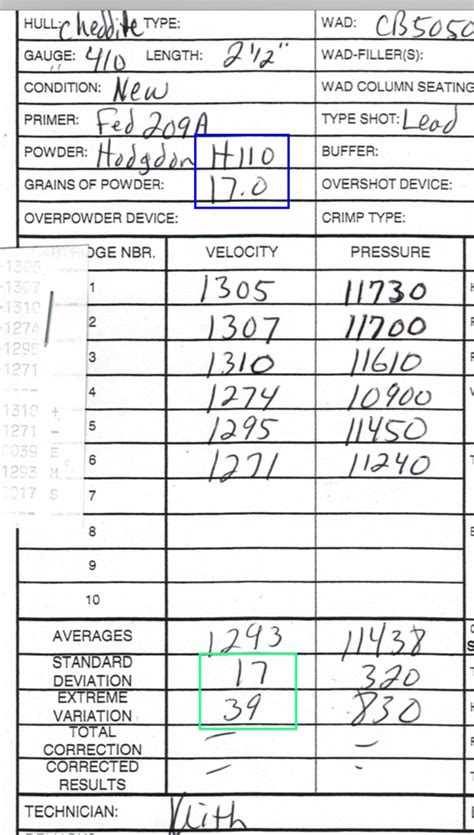 HULL: Cheddite TYPE: WAD: CB5050
GAUGE: 410 LENGTH: 2 1/2" WAD-FILLER(S):
CONDITION: New WAD COLUMN SEATING
PRIMER: Fed 209A TYPE SHOT: Lead
POWDER: Hodgdon H110 BUFFER:
GRAINS OF POWDER: 17.0 OVERSHOT DEVICE:
OVERPOWDER DEVICE: CRIMP TYPE:
DGE NBR. VELOCITY PRESSURE
1 1305 11730
2 1307 11700
3 1310 11610
4 1274 10900
5 1295 11450
6 1271 11240
7
8
9
10
-1305
-1307
-1310
-1274
-1295
-1271
----
1310 +
1271 -
0039 E
1293 M
0017 S
AVERAGES 1293 11438
STANDARD
DEVIATION 17 320
EXTREME
VARIATION 39 830
TOTAL
CORRECTION – –
CORRECTED
RESULTS – –
TECHNICIAN: Keith